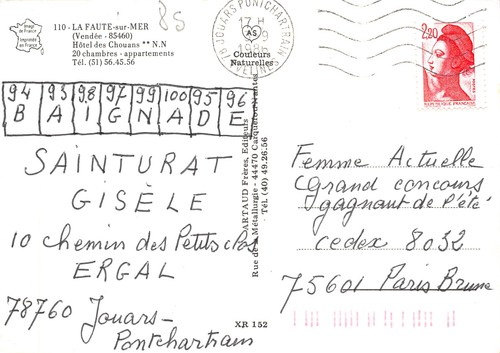 Image de France
Imprimée en France
110 - LA FAUTE-sur-MER
(Vendée - 85460)
Hôtel des Chouans ** N.N
20 chambres - appartements
Tél. (51) 56.45.56
85
JOUARS PONTCHARTRAIN
17 H
AS
1985
YVELINES
Couleurs
Naturelles
2,20
REPUBLIQUE FRANÇAISE
94 93 98 97 99 100 95 96
B A I G N A D E
SAINTURAT
GISÈLE
10 chemin des Petits clos
ERGAL
78760 Jouars-
Pontchartrain
ARTAUD Frères, Editeurs
Rue de la Métallurgie - 44470 Carquefou-Nantes
Tél. (40) 49.26.56
XR 152
Femme Actuelle
Grand concours
gagnant de l'été
cedex 8032
75601 Paris Brune